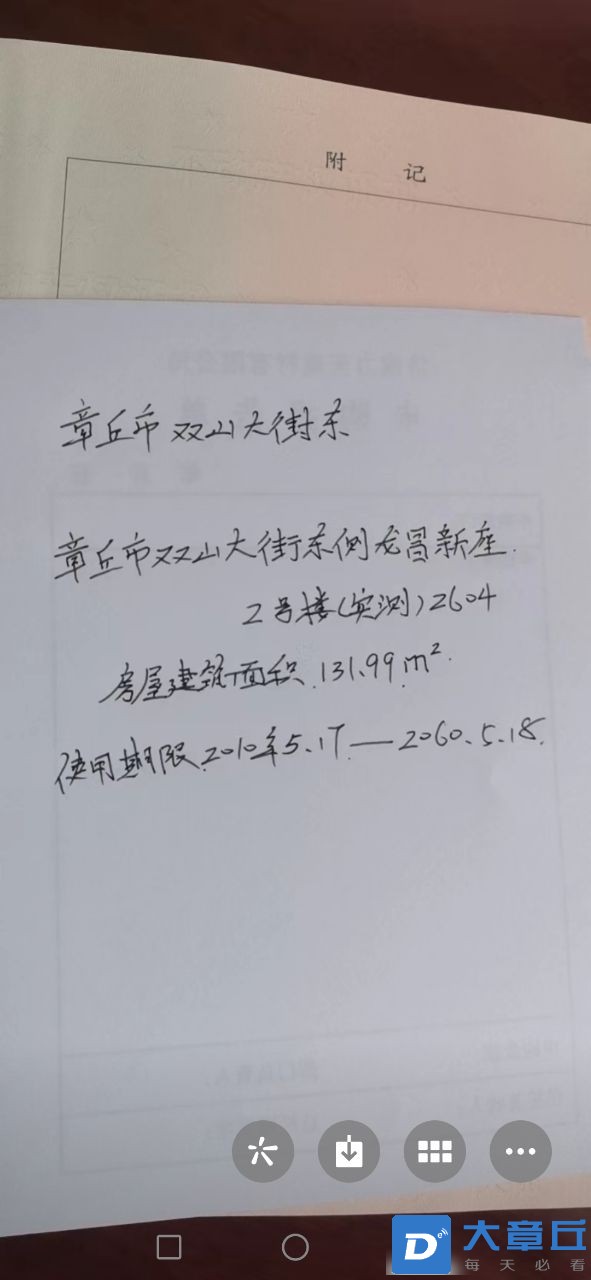 附 记
章丘市双山大街东
章丘市双山大街东侧龙昌新座.
2号楼(实测)2604
房屋建筑面积.131.99m².
使用期限.2010年5.17.—2060.5.18.
大章丘
每天必看